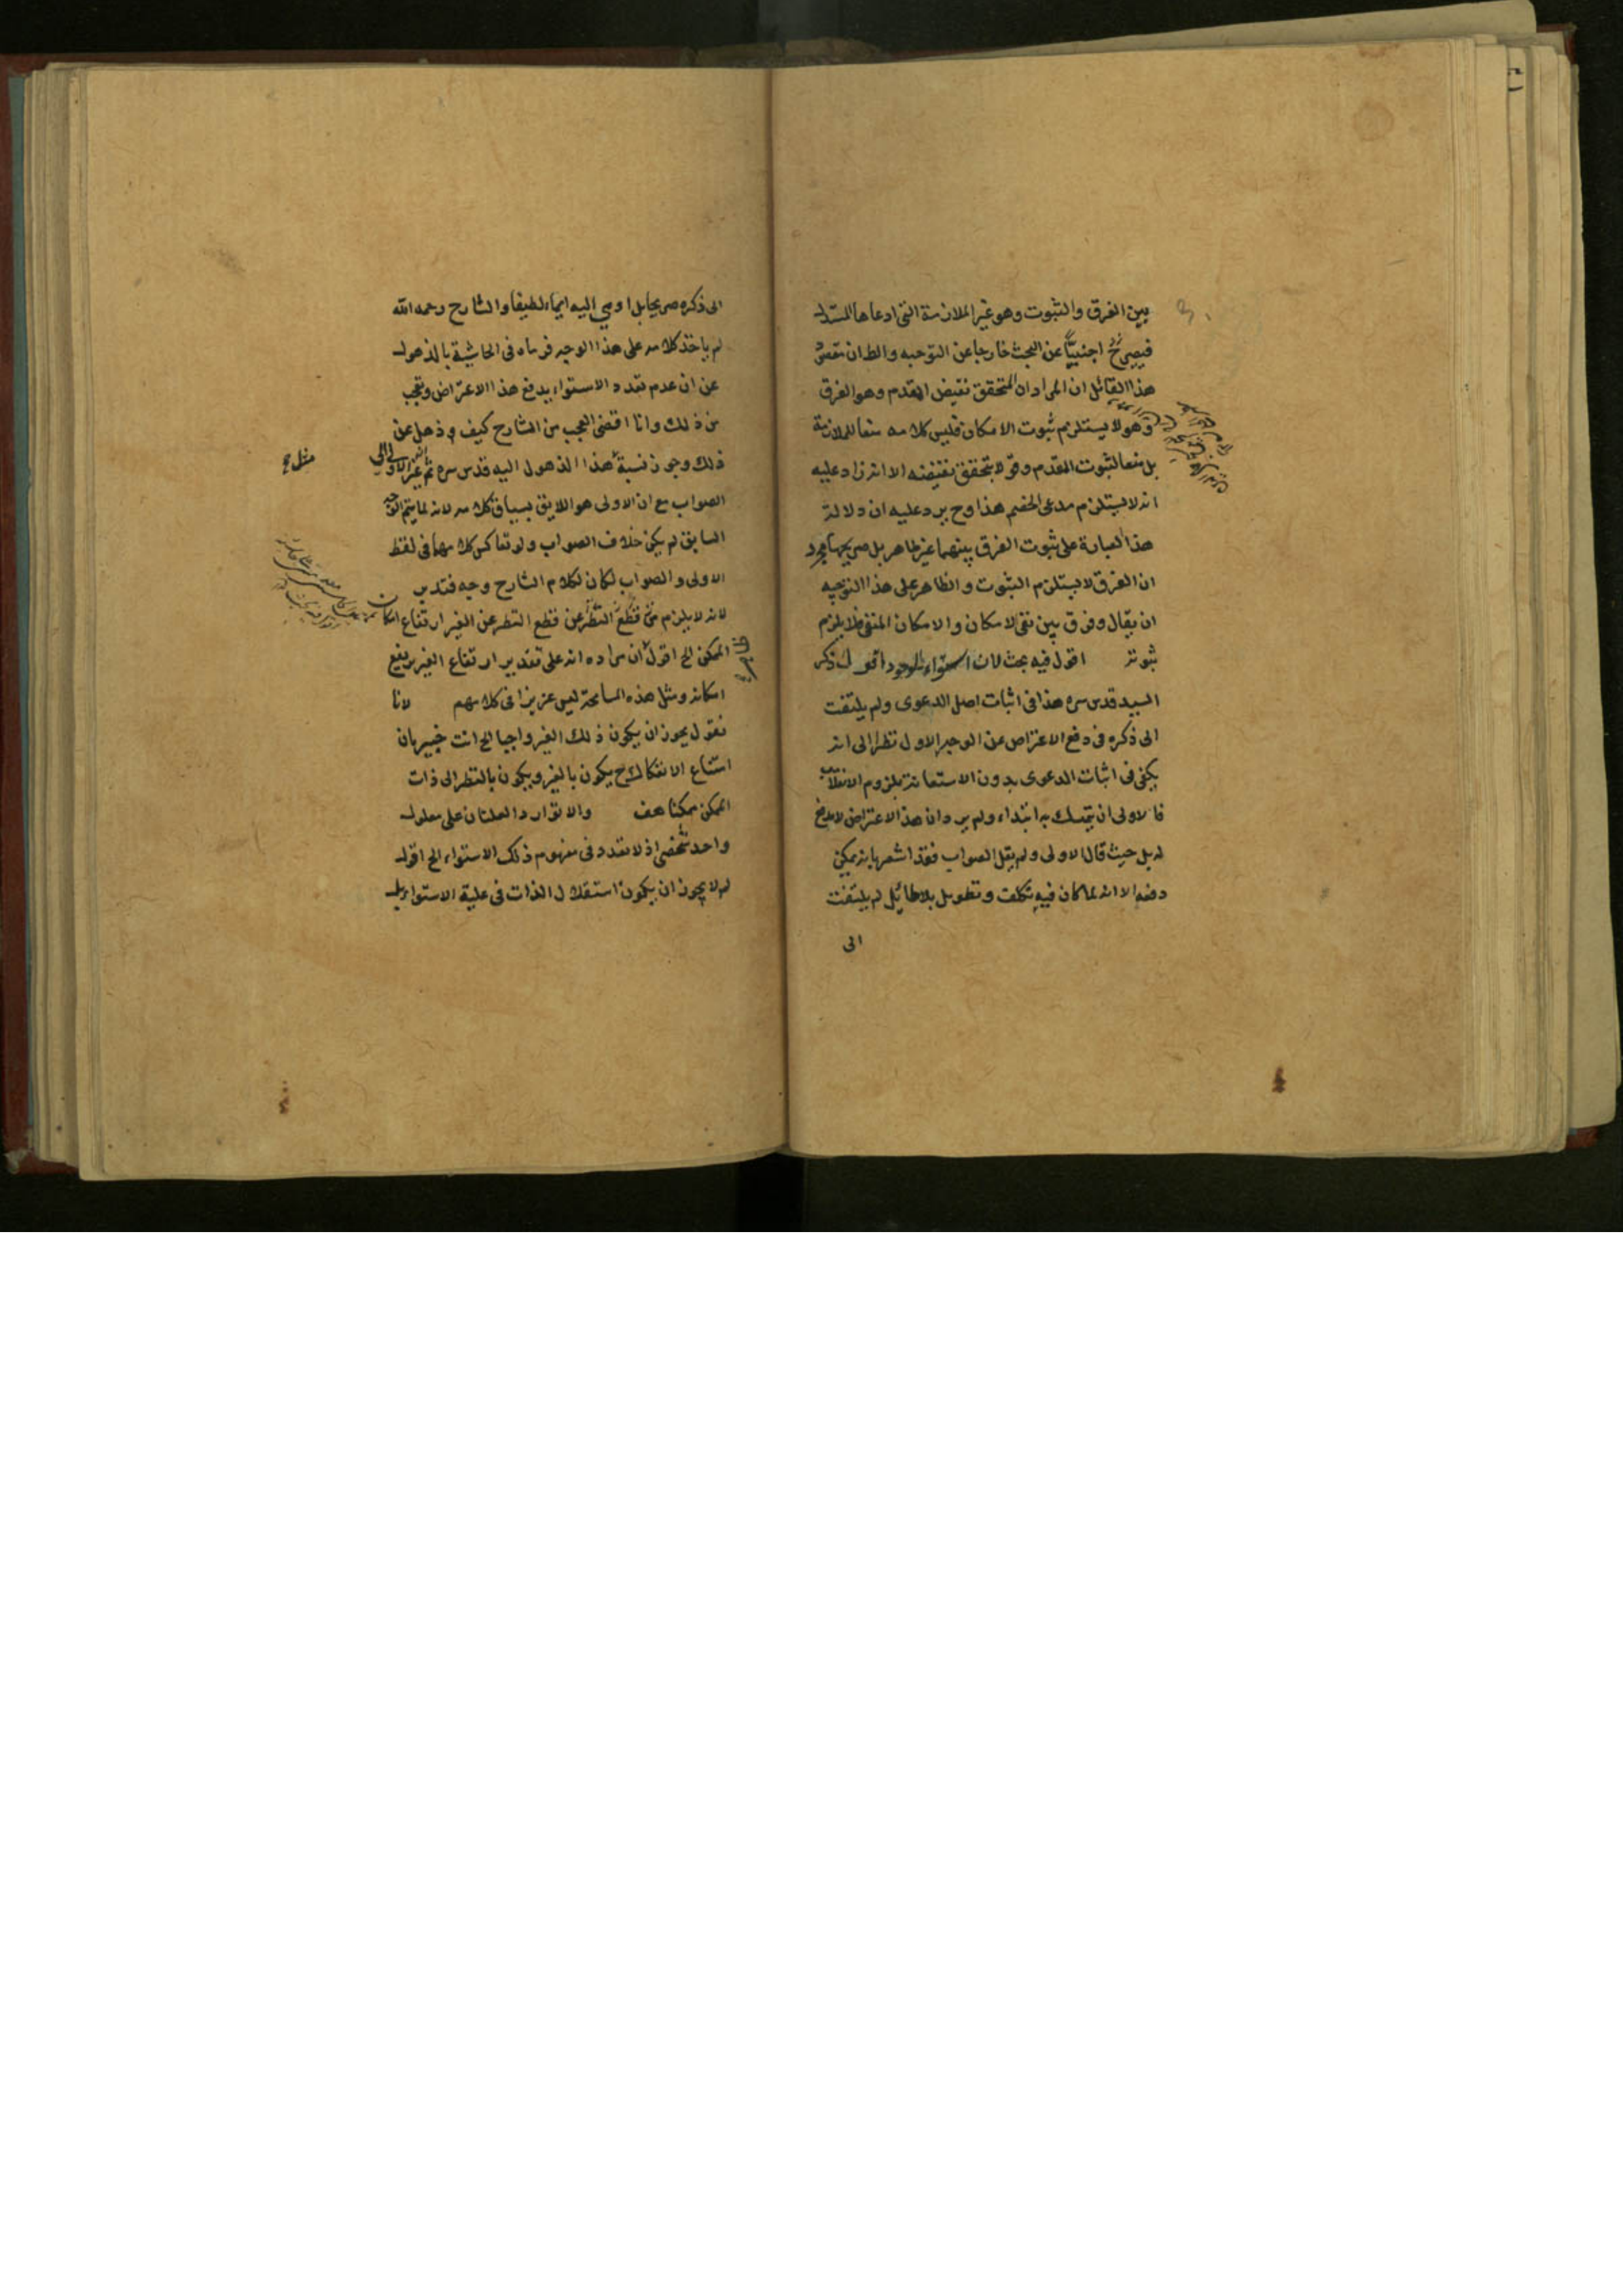 بين الفرق والثبوت وهو غير الملازمة التي ادعاها المستدل
فيصير ح اجنبيًّا عن البحث خارجا عن التوجيه والظ ان مقصود
هذا القائل ان المراد ان المتحقق نقيض المقدم وهو الفرق
وهو لا يستلزم ثبوت الامكان فليس كلامه منعا للملازمة
بل منعا لثبوت المقدم وهو لا يتحقق نقيضه الا انه زاد عليه
انه لا يستلزم مدعى الخصم هذا وح يرد عليه ان دلالة
هذا العبارة على ثبوت الفرق بينهما غير ظاهر بل صريحها مجرد
ان الفرق لا يستلزم الثبوت والظاهر على هذا التوجيه
ان يقال وفرق بين نفي الامكان والامكان المنفي فلا يلزم
ثبوته اقول فيه بحث لان استواء الوجود ذكر
السيد قدس سره هذا في اثبات اصل الدعوى ولم يلتفت
الى ذكره في دفع الاعتراض عن الوجه الاول نظرا الى انه
يكفي في اثبات الدعوى بدون الاستعانة بلزوم الانقلاب
فالاولى ان يتمسك به ابتداء ولم يرد ان هذا الاعتراض لا مدفع
له بل حيث قال الاولى ولم يقل الصواب فقد اشعر بانه يمكن
دفعه الا انه لما كان فيه تكلف وتطويل بلا طائل لم يلتفت
الى
الى ذكره صريحا بل اومي اليه ايماء لطيفا والشارح رحمه الله
لم ياخذ كلامه على هذا الوجه فرماه في الحاشية بالذهول
عن ان عدم تعدد الاستواء يدفع هذا الاعتراض وتعجب
من ذلك وانا اقضي العجب من الشارح كيف ذهل عن
ذلك وجوز نسبة هذا الذهول اليه قدس سره ثم غير الاولى الى
الصواب مع ان الاولى هو اللايق بسياق كلامه لانه لما يتم الوجه
السابق لم يكن خلاف الصواب ولو تعاكس كلامهما في لفظ
الاولى والصواب لكان لكلام الشارح وجه فتدبر
لانه لا يلزم من قطع النظر عن قطع النظر عن الغير ارتفاع امكان
الممكن الخ اقول ان مراده انه على تقدير ارتفاع الغير يرتفع
امكانه ومثل هذه المسامحة ليس عزيزا في كلامهم لانا
نقول يجوز ان يكون ذلك الغير واجبا الخ انت خبير بان
امتناع الانفكاك ح يكون بالغير ويكون بالنظر الى ذات
الممكن ممكنا هف والا توارد العلتان على معلول
واحد شخصي اذ لا تعدد في مفهوم ذلك الاستواء الخ اقول
لم لا يجوز ان يكون استقلال الذات في علية الاستواء